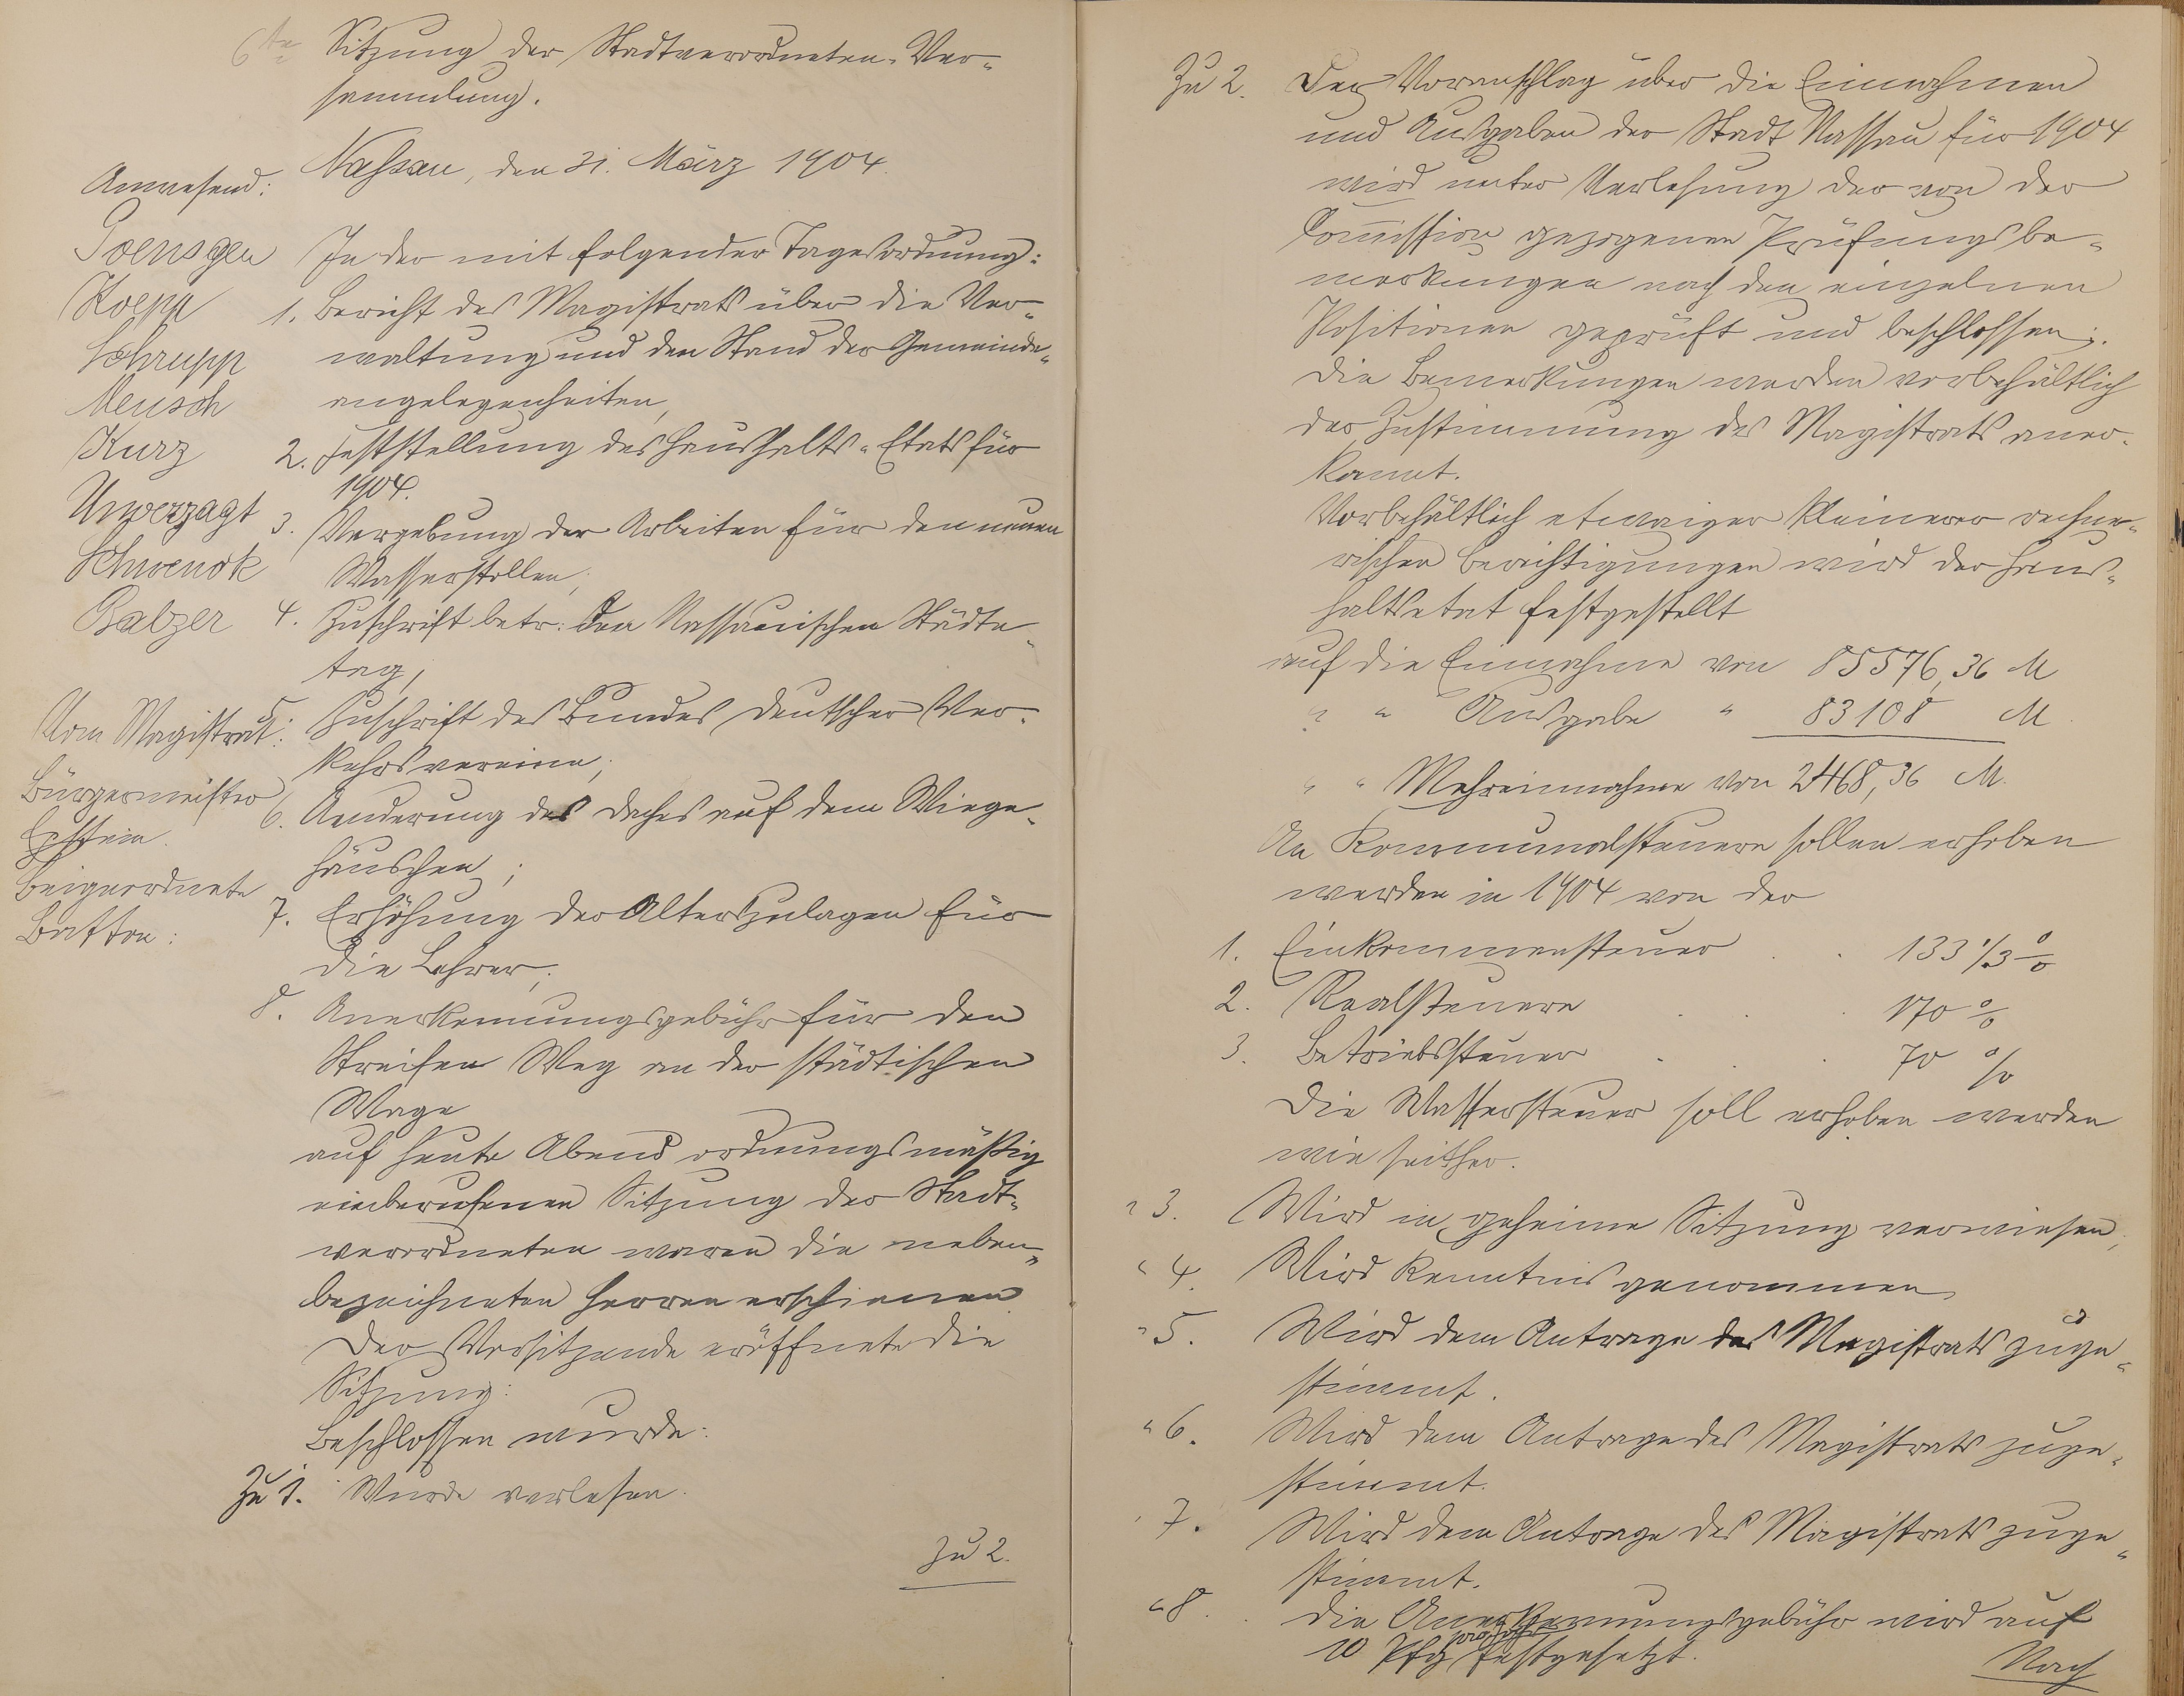 6te Sitzung der Stadtverordneten-Ver-
sammlung.
Nassau, den 31. März 1904.
Anwesend:
Goensgen
Koepp
Schrupp
Meusch
Kurz
Unverzagt
Schwenck
Balzer
Vom Magistrat:
Bürgermeister
Epstein.
Beigeordnete
Batton:
In der mit folgender Tagesordnung:
1. Bericht des Magistrats über die Ver-
waltung und den Stand der Gemeinde-
angelegenheiten,
2. Feststellung des Haushalts-Etats für
1904.
3. Vergebung der Arbeiten für den neuen
Wasserstollen;
4. Zuschrift betr. den Nassauischen Städte-
tag,
5. Zuschrift des Bundes deutscher Ver-
kehrsvereine;
6. Aenderung des Daches auf dem Wiege-
häuschen;
7. Erhöhung der Alterszulagen für
die Lehrer;
8. Anerkennungsgebühr für den
Streifen Weg an der städtischen
Wage
auf heute Abend ordnungsmäßig
einberufenen Sitzung der Stadt-
verordneten waren die neben-
bezeichneten Herren erschienen
Der Vorsitzende eröffnete die
Sitzung:
Beschlossen wurde:
Zu 1. Wurde verlesen.
Zu 2.
Zu 2. Der Voranschlag über die Einnahmen
und Ausgaben der Stadt Nassau für 1904
wird unter Verlesung der von der
Commission gezogenen Prüfungsbe-
merkungen nach den einzelnen
Positionen geprüft und beschlossen:
Die Bemerkungen werden vorbehältlich
der Zustimmung des Magistrats aner-
kannt.
Vorbehältlich etwaiger kleinerer rechne-
rischen Berichtigungen wird der Haus-
haltsetat festgestellt
auf die Einnahme von 85576,36 M
" " Ausgabe " 83108 M
" " Mehreinnahme von 2468,36 M.
An Kommunalsteuern sollen erhoben
werden in 1904 von der
1. Einkommensteuer . . 133 1/3 %
2. Realsteuern . . . 170 %
3. Betriebssteuer . . . 70 %
Die Wassersteuer soll erhoben werden
wie seither.
" 3. Wird in geheime Sitzung verwiesen,
" 4. Wird Kenntnis genommen
" 5. Wird dem Antrage des Magistrats zuge-
stimmt.
" 6. Wird dem Antrage des Magistrats zuge-
stimmt.
" 7. Wird dem Antrage des Magistrats zuge-
stimmt.
" 8. Die Anerkennungsgebühr wird auf
10 Pfg pro Jahr festgesetzt.
Nach